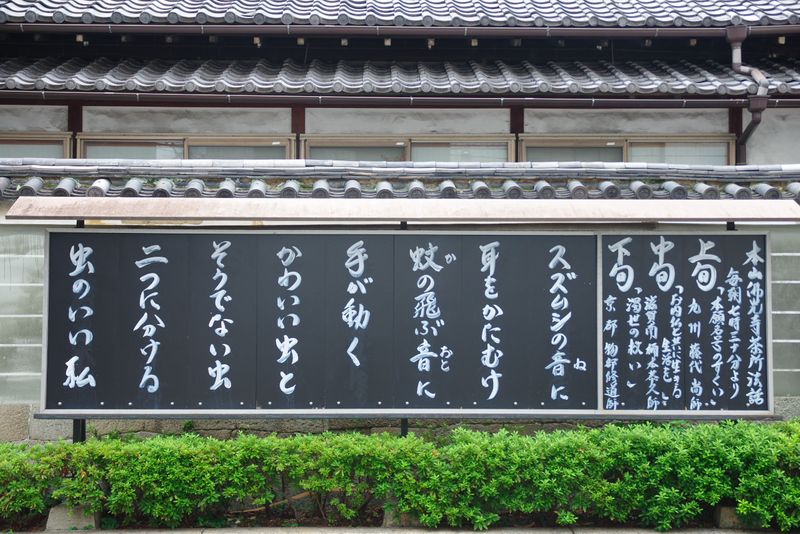 本山佛光寺茶所法話
毎朝七時三十分より
上旬
「本願名号のすくい」
九州 藤代 尚師
中旬
「お内仏と共に生きる
生活を」
滋賀南
下旬
「濁世の救い」
京都 物部修道師
スズムシの音に
ね
耳をかたむけ
蚊の飛ぶ音に
か
おと
手が動く
かわいい虫と
そうでない虫
二つに分ける
虫のいい私